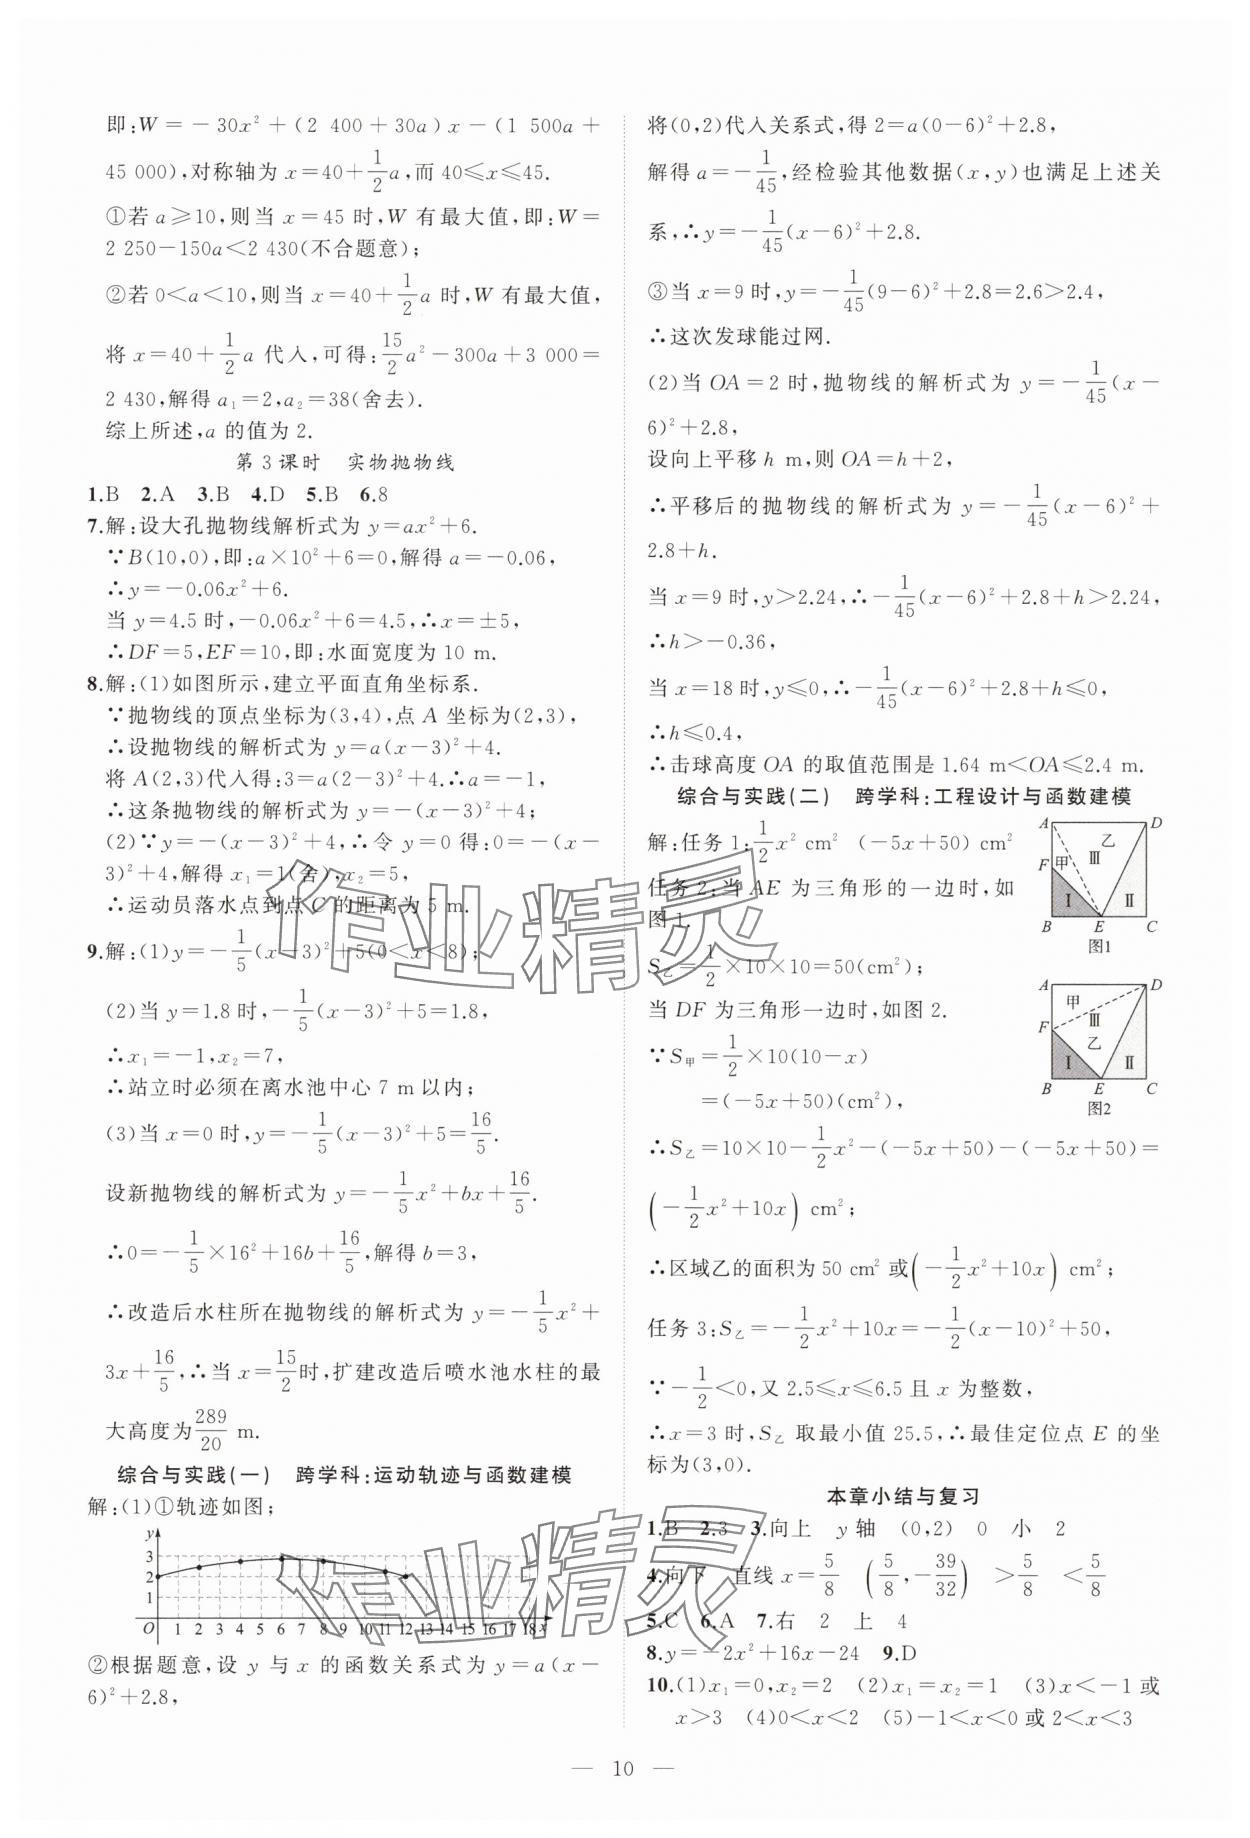 即:W=-30x²+(2 400+30a)x-(1 500a+
45 000),对称轴为 x=40+1/2a,而 40≤x≤45.
①若 a≥10,则当 x=45 时,W 有最大值,即:W=
2 250-150a<2 430(不合题意);
②若 0<a<10,则当 x=40+1/2a 时,W 有最大值,
将 x=40+1/2a 代入,可得:15/2a²-300a+3 000=
2 430,解得 a₁=2,a₂=38(舍去).
综上所述,a 的值为 2.
第 3 课时 实物抛物线
1.B 2.A 3.B 4.D 5.B 6.8
7.解:设大孔抛物线解析式为 y=ax²+6.
∵B(10,0),即:a×10²+6=0,解得 a=-0.06,
∴y=-0.06x²+6.
当 y=4.5 时,-0.06x²+6=4.5,∴x=±5,
∴DF=5,EF=10,即:水面宽度为 10 m.
8.解:(1)如图所示,建立平面直角坐标系.
∵抛物线的顶点坐标为(3,4),点 A 坐标为(2,3),
∴设抛物线的解析式为 y=a(x-3)²+4.
将 A(2,3)代入得:3=a(2-3)²+4.∴a=-1,
∴这条抛物线的解析式为 y=-(x-3)²+4;
(2)∵y=-(x-3)²+4,∴令 y=0 得:0=-(x-
3)²+4,解得 x₁=1(舍),x₂=5,
∴运动员落水点到点 C 的距离为 5 m.
9.解:(1)y=-1/5(x-3)²+5(0<x<8);
(2)当 y=1.8 时,-1/5(x-3)²+5=1.8,
∴x₁=-1,x₂=7,
∴站立时必须在离水池中心 7 m 以内;
(3)当 x=0 时,y=-1/5(x-3)²+5=16/5.
设新抛物线的解析式为 y=-1/5x²+bx+16/5.
∴0=-1/5×16²+16b+16/5,解得 b=3,
∴改造后水柱所在抛物线的解析式为 y=-1/5x²+
3x+16/5,∴当 x=15/2时,扩建改造后喷水池水柱的最
大高度为289/20 m.
综合与实践(一) 跨学科:运动轨迹与函数建模
解:(1)①轨迹如图;
y
3
2
1
O 1 2 3 4 5 6 7 8 9 10 11 12 13 14 15 16 17 18 x
②根据题意,设 y 与 x 的函数关系式为 y=a(x-
6)²+2.8,
将(0,2)代入关系式,得 2=a(0-6)²+2.8,
解得 a=-1/45,经检验其他数据(x,y)也满足上述关
系,∴y=-1/45(x-6)²+2.8.
③当 x=9 时,y=-1/45(9-6)²+2.8=2.6>2.4,
∴这次发球能过网.
(2)当 OA=2 时,抛物线的解析式为 y=-1/45(x-
6)²+2.8,
设向上平移 h m,则 OA=h+2,
∴平移后的抛物线的解析式为 y=-1/45(x-6)²+
2.8+h.
当 x=9 时,y>2.24,∴-1/45(x-6)²+2.8+h>2.24,
∴h>-0.36,
当 x=18 时,y≤0,∴-1/45(x-6)²+2.8+h≤0,
∴h≤0.4,
∴击球高度 OA 的取值范围是 1.64 m<OA≤2.4 m.
综合与实践(二) 跨学科:工程设计与函数建模
解:任务 1:1/2x² cm² (-5x+50) cm²
任务 2:当 AE 为三角形的一边时,如
图 1.
A D 乙 Ⅲ F 甲 Ⅰ Ⅱ B E C
图1
S乙=1/2×10×10=50(cm²);
当 DF 为三角形一边时,如图 2.
A D 甲 Ⅲ F 乙 Ⅰ Ⅱ B E C
图2
∵S甲=1/2×10(10-x)
=(-5x+50)(cm²),
∴S乙=10×10-1/2x²-(-5x+50)-(-5x+50)=
(-1/2x²+10x) cm²;
∴区域乙的面积为 50 cm² 或(-1/2x²+10x) cm²;
任务 3:S乙=-1/2x²+10x=-1/2(x-10)²+50,
∵-1/2<0,又 2.5≤x≤6.5 且 x 为整数,
∴x=3 时,S乙 取最小值 25.5,∴最佳定位点 E 的坐
标为(3,0).
本章小结与复习
1.B 2.3 3.向上 y 轴 (0,2) 0 小 2
4.向下 直线 x=5/8 (5/8,-39/32) >5/8 <5/8
5.C 6.A 7.右 2 上 4
8.y=-2x²+16x-24 9.D
10.(1)x₁=0,x₂=2 (2)x₁=x₂=1 (3)x<-1 或
x>3 (4)0<x<2 (5)-1<x<0 或 2<x<3
— 10 —
作业精灵
作业精灵